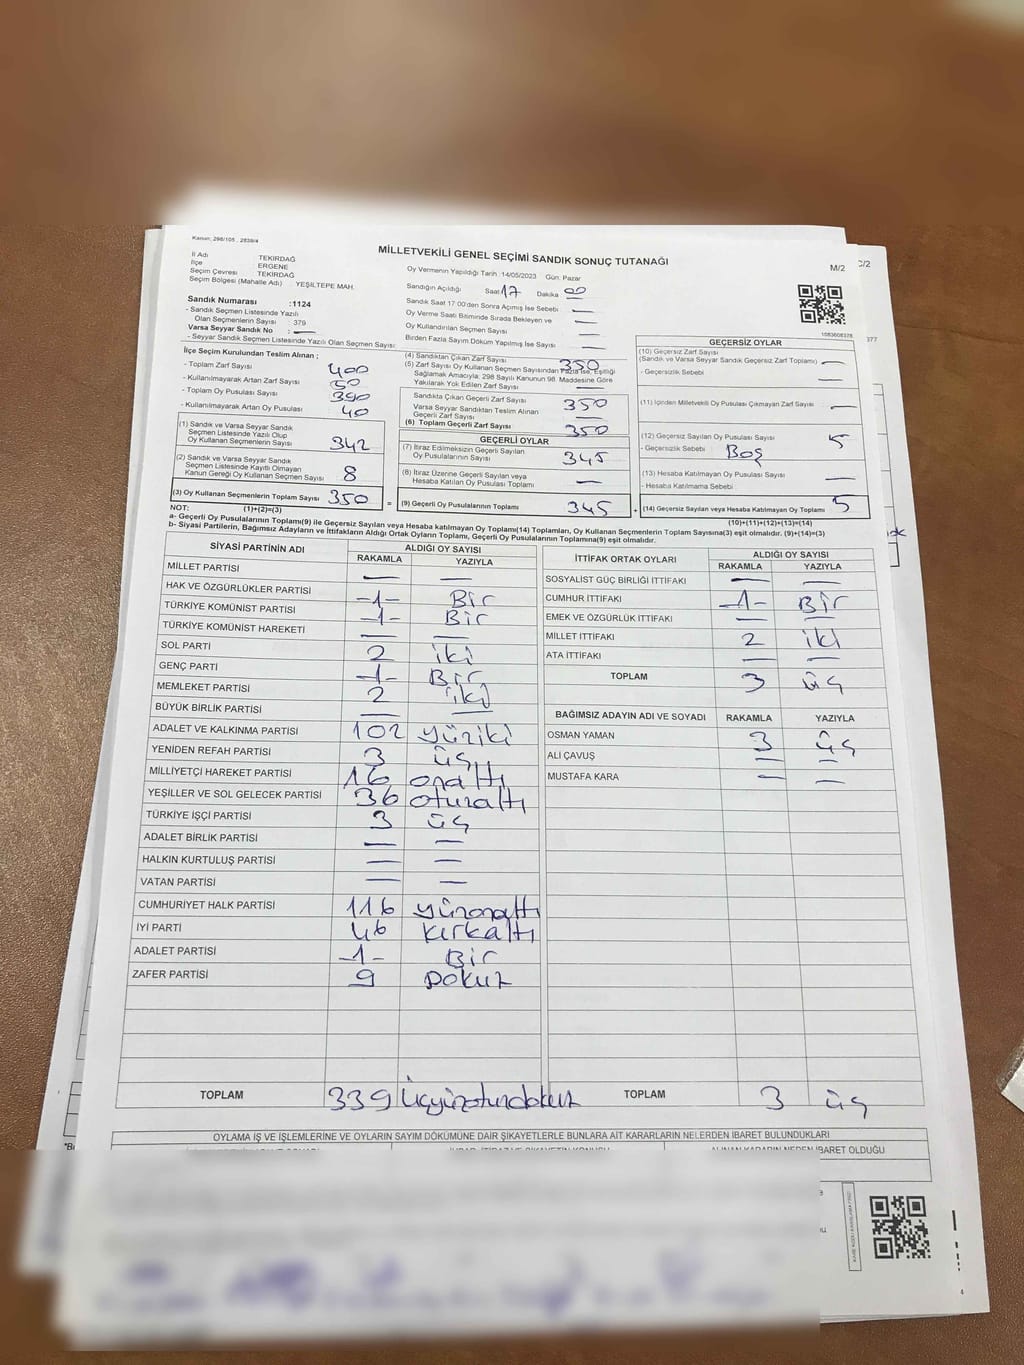 Kanun: 298/105 , 2839/4
MİLLETVEKİLİ GENEL SEÇİMİ SANDIK SONUÇ TUTANAĞI
M/2
C/2
İl Adı TEKİRDAĞ
İlçe ERGENE
Seçim Çevresi TEKİRDAĞ
Seçim Bölgesi (Mahalle Adı) YEŞİLTEPE MAH.
Oy Vermenin Yapıldığı Tarih :14/05/2023 Gün: Pazar
Sandığın Açıldığı Saat 17 Dakika 00
Sandık Saat 17:00'den Sonra Açılmış İse Sebebi —
Oy Verme Saati Bitiminde Sırada Bekleyen ve
Oy Kullandırılan Seçmen Sayısı —
Birden Fazla Sayım Döküm Yapılmış İse Sayısı —
1083608378
377
Sandık Numarası :1124
- Sandık Seçmen Listesinde Yazılı
Olan Seçmenlerin Sayısı 379
Varsa Seyyar Sandık No : —
- Seyyar Sandık Seçmen Listesinde Yazılı Olan Seçmen Sayısı:
İlçe Seçim Kurulundan Teslim Alınan ;
- Toplam Zarf Sayısı 400
- Kullanılmayarak Artan Zarf Sayısı 50
- Toplam Oy Pusulası Sayısı 390
- Kullanılmayarak Artan Oy Pusulası 40
(1) Sandık ve Varsa Seyyar Sandık
Seçmen Listesinde Yazılı Olup
Oy Kullanan Seçmenlerin Sayısı 342
(2) Sandık ve Varsa Seyyar Sandık
Seçmen Listesinde Kayıtlı Olmayan
Kanun Gereği Oy Kullanan Seçmen Sayısı 8
(3) Oy Kullanan Seçmenlerin Toplam Sayısı 350 =
(4) Sandıktan Çıkan Zarf Sayısı 350
(5) Zarf Sayısı Oy Kullanan Seçmen Sayısından Fazla İse, Eşitliği
Sağlamak Amacıyla; 298 Sayılı Kanunun 98. Maddesine Göre
Yakılarak Yok Edilen Zarf Sayısı —
Sandıkta Çıkan Geçerli Zarf Sayısı 350
Varsa Seyyar Sandıktan Teslim Alınan
Geçerli Zarf Sayısı —
(6) Toplam Geçerli Zarf Sayısı 350
GEÇERLİ OYLAR
(7) İtiraz Edilmeksizin Geçerli Sayılan
Oy Pusulalarının Sayısı 345
(8) İtiraz Üzerine Geçerli Sayılan veya
Hesaba Katılan Oy Pusulası Toplamı —
(9) Geçerli Oy Pusulalarının Toplamı 345 +
GEÇERSİZ OYLAR
(10) Geçersiz Zarf Sayısı
(Sandık ve Varsa Seyyar Sandık Geçersiz Zarf Toplamı) —
- Geçersizlik Sebebi —
(11) İçinden Milletvekili Oy Pusulası Çıkmayan Zarf Sayısı —
(12) Geçersiz Sayılan Oy Pusulası Sayısı 5
- Geçersizlik Sebebi Boş
(13) Hesaba Katılmayan Oy Pusulası Sayısı —
- Hesaba Katılmama Sebebi
(14) Geçersiz Sayılan veya Hesaba Katılmayan Oy Toplamı 5
NOT: (1)+(2)=(3) (10)+(11)+(12)+(13)=(14)
a- Geçerli Oy Pusulalarının Toplamı(9) ile Geçersiz Sayılan veya Hesaba katılmayan Oy Toplamı(14) Toplamları, Oy Kullanan Seçmenlerin Toplam Sayısına(3) eşit olmalıdır. (9)+(14)=(3)
b- Siyasi Partilerin, Bağımsız Adayların ve İttifakların Aldığı Ortak Oyların Toplamı, Geçerli Oy Pusulalarının Toplamına(9) eşit olmalıdır.
SİYASİ PARTİNİN ADI ALDIĞI OY SAYISI
RAKAMLA YAZIYLA
MİLLET PARTİSİ — —
HAK VE ÖZGÜRLÜKLER PARTİSİ -1- Bir
TÜRKİYE KOMÜNİST PARTİSİ -1- Bir
TÜRKİYE KOMÜNİST HAREKETİ — —
SOL PARTİ 2 iki
GENÇ PARTİ -1- Bir
MEMLEKET PARTİSİ 2 iki
BÜYÜK BİRLİK PARTİSİ — —
ADALET VE KALKINMA PARTİSİ 102 yüziki
YENİDEN REFAH PARTİSİ 3 üç
MİLLİYETÇİ HAREKET PARTİSİ 16 onaltı
YEŞİLLER VE SOL GELECEK PARTİSİ 36 otuzaltı
TÜRKİYE İŞÇİ PARTİSİ 3 üç
ADALET BİRLİK PARTİSİ — —
HALKIN KURTULUŞ PARTİSİ — —
VATAN PARTİSİ — —
CUMHURİYET HALK PARTİSİ 116 yüzonaltı
İYİ PARTİ 46 kırkaltı
ADALET PARTİSİ -1- Bir
ZAFER PARTİSİ 9 Dokuz
TOPLAM 339 Üçyüzotuzdokuz
İTTİFAK ORTAK OYLARI ALDIĞI OY SAYISI
RAKAMLA YAZIYLA
SOSYALİST GÜÇ BİRLİĞİ İTTİFAKI — —
CUMHUR İTTİFAKI -1- Bir
EMEK VE ÖZGÜRLÜK İTTİFAKI — —
MİLLET İTTİFAKI 2 iki
ATA İTTİFAKI — —
TOPLAM 3 üç
BAĞIMSIZ ADAYIN ADI VE SOYADI RAKAMLA YAZIYLA
OSMAN YAMAN 3 üç
ALİ ÇAVUŞ — —
MUSTAFA KARA — —
TOPLAM 3 üç
OYLAMA İŞ VE İŞLEMLERİNE VE OYLARIN SAYIM DÖKÜMÜNE DAİR ŞİKAYETLERLE BUNLARA AİT KARARLARIN NELERDEN İBARET BULUNDUKLARI
ALINAN KARARIN NEDEN İBARET OLDUĞU
4